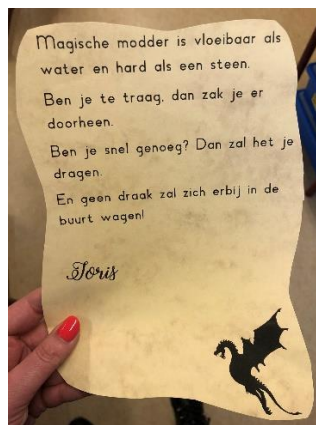 Magische modder is vloeibaar als
water en hard als een steen.
Ben je te traag, dan zak je er
doorheen.
Ben je snel genoeg? Dan zal het je
dragen.
En geen draak zal zich erbij in de
buurt wagen!
Joris